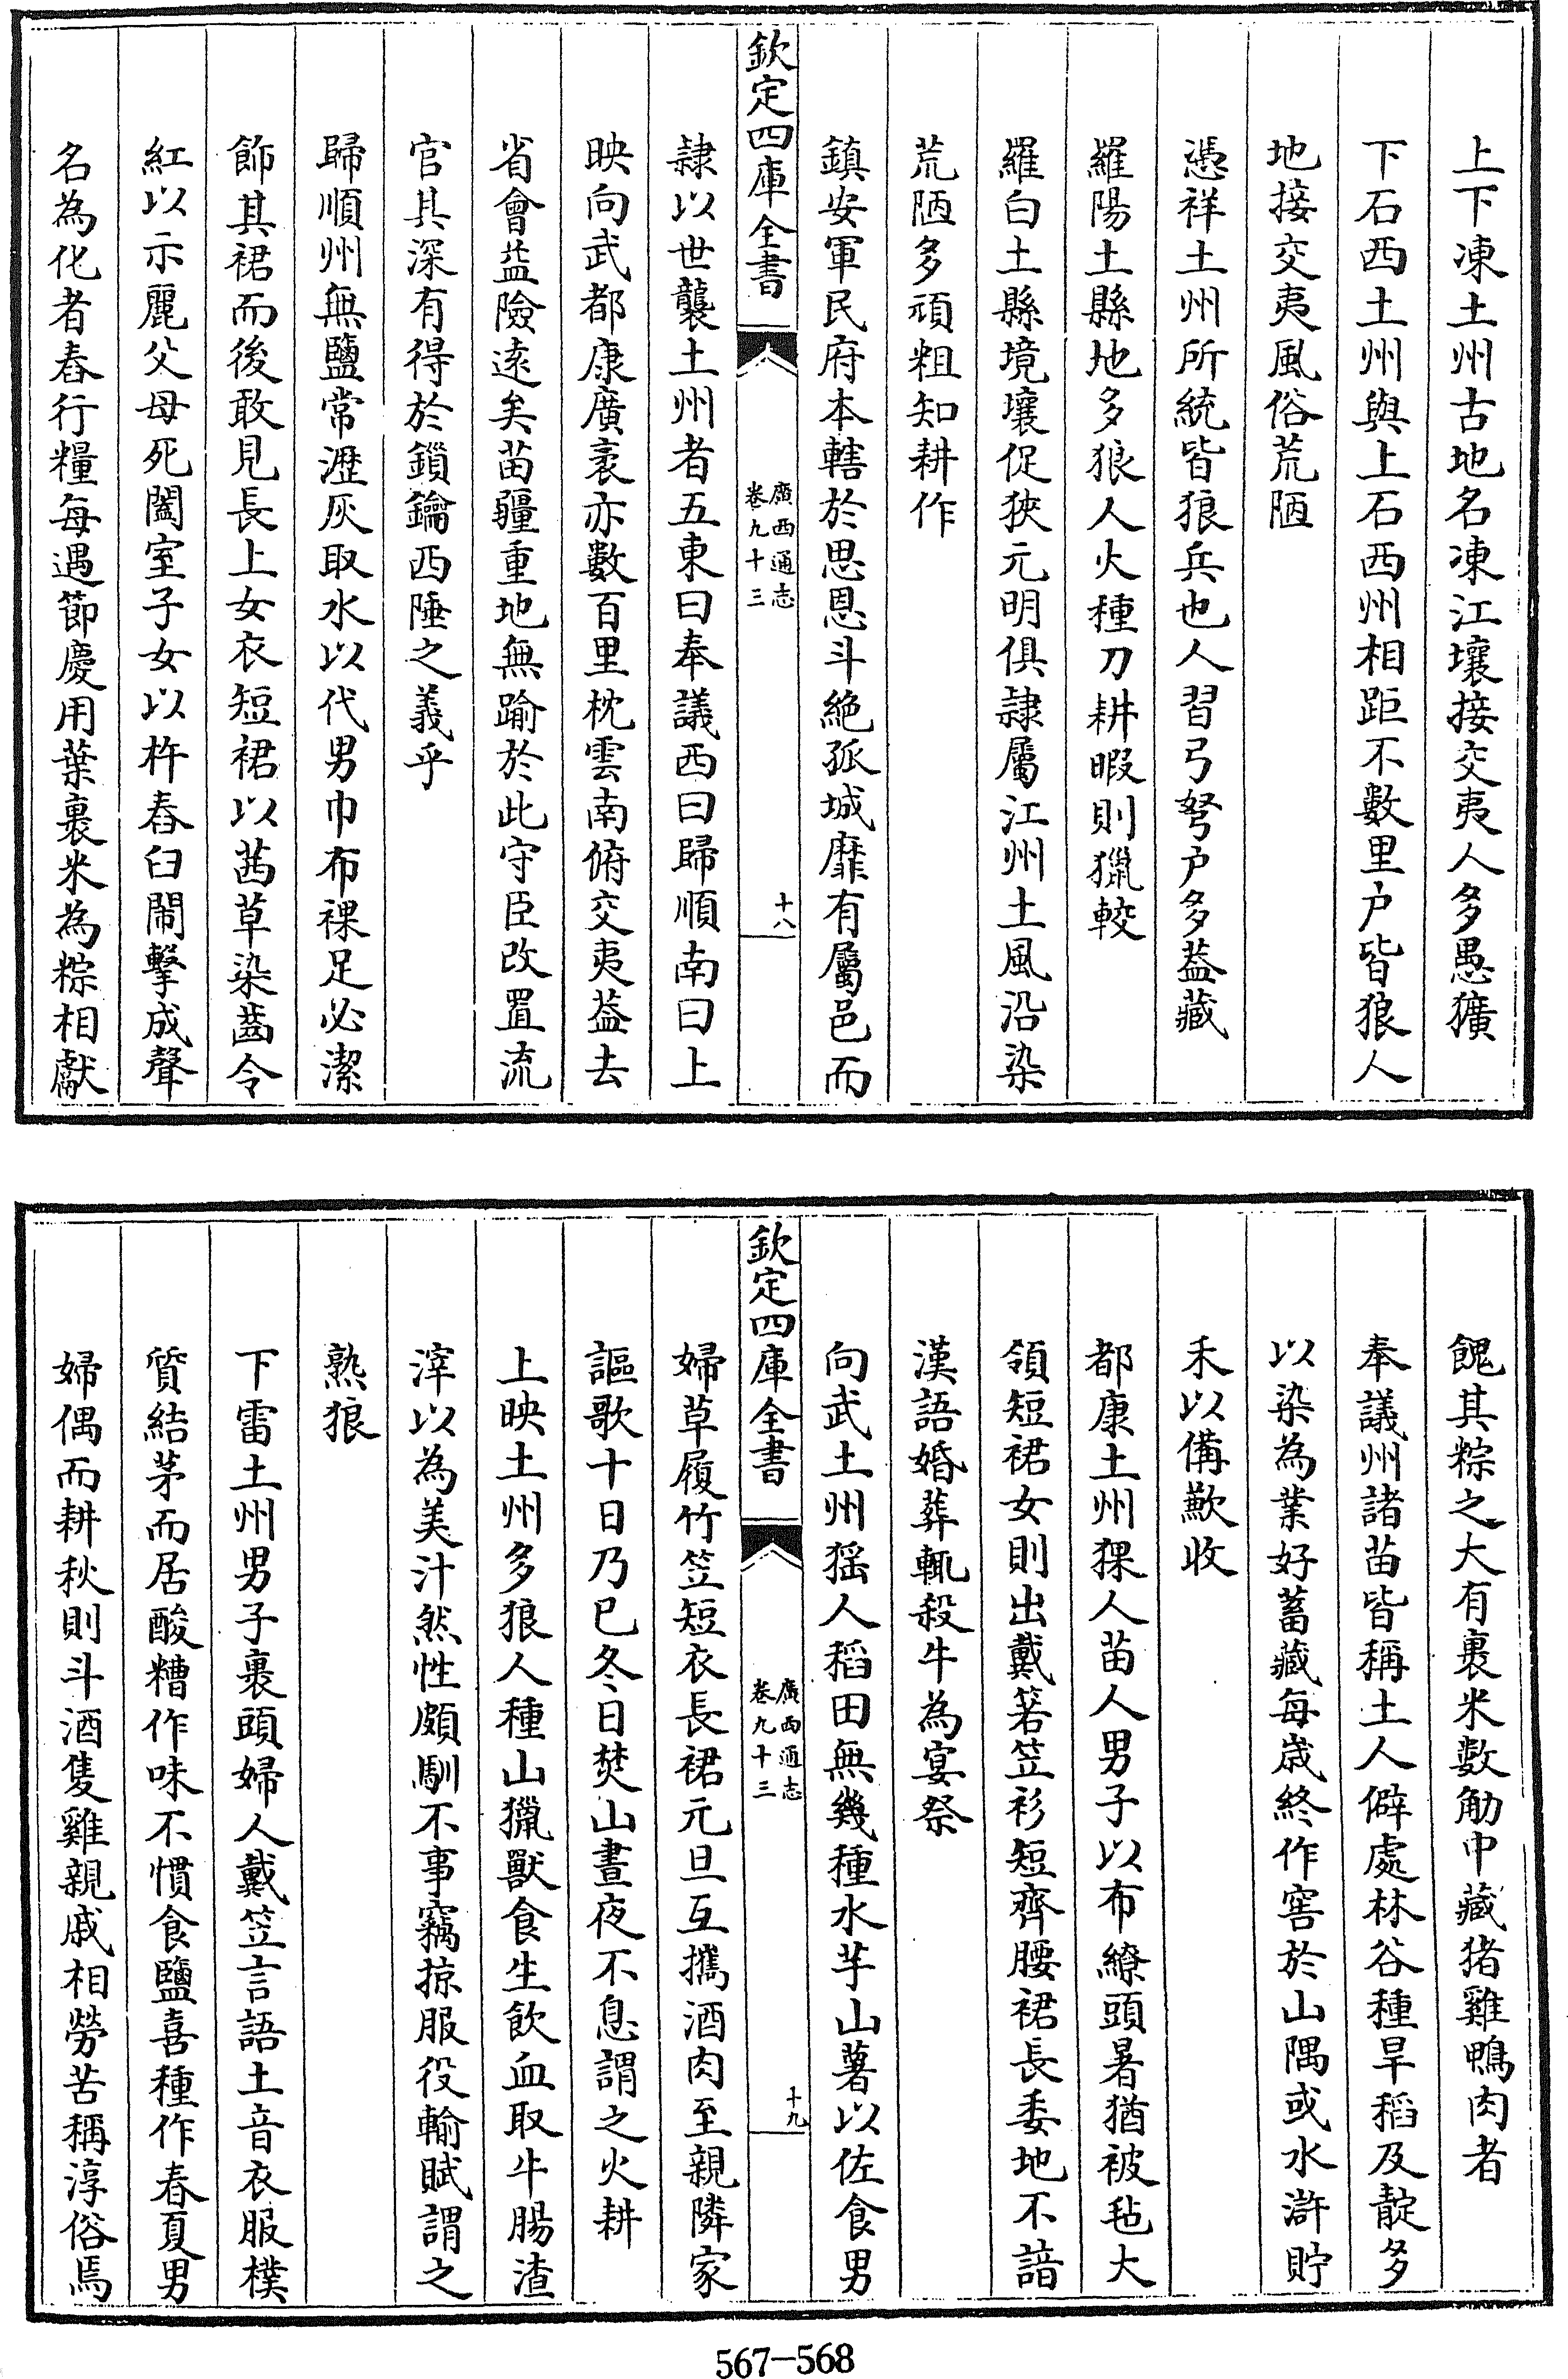 上下凍土州古地名凍江壤接交夷人多愚獷
下石西土州與上石西州相距不數里户皆狼人
地接交夷風俗荒陋
憑祥土州所統皆狼兵也人習弓弩户多葢藏
羅陽土縣地多狼人火種刀耕暇則獵較
羅白土縣境壤促狹元明俱隷屬江州土風沿染
荒陋多頑粗知耕作
鎮安軍民府本轄於思恩斗絶孤城靡有屬邑而
欽定四庫全書
廣西通志
卷九十三
十八
隷以世襲土州者五東曰奉議西曰歸順南曰上
映向武都康廣袤亦數百里枕雲南俯交夷葢去
省會益險逺矣苗疆重地無踰於此守臣改置流
官其深有得於鎖鑰西陲之義乎
歸順州無鹽常瀝灰取水以代男巾布裸足必潔
飾其裙而後敢見長上女衣短裙以茜草染齒令
紅以示麗父母死闔室子女以杵舂臼鬧擊成聲
名為化者舂行糧每遇節慶用葉裹米為粽相獻
餽其粽之大有裹米数觔中藏猪雞鴨肉者
奉議州諸苗皆稱土人僻處林谷種旱稻及靛多
以染為業好蓄藏每歳終作窖於山隅或水滸貯
禾以備歉收
都康土州猓人苗人男子以布繚頭暑猶被毡大
領短裙女則出戴箬笠衫短齊腰裙長委地不諳
漢語婚葬輒殺牛為宴祭
向武土州猺人稻田無幾種水芋山薯以佐食男
欽定四庫全書
廣西通志
卷九十三
十九
婦草履竹笠短衣長裙元旦互攜酒肉至親隣家
謳歌十日乃已冬日焚山晝夜不息謂之火耕
上映土州多狼人種山獵獸食生飲血取牛腸渣
滓以為美汁然性頗馴不事竊掠服役輸賦謂之
熟狼
下雷土州男子裹頭婦人戴笠言語土音衣服樸
質結茅而居酸糟作味不慣食鹽喜種作春夏男
婦偶而耕秋則斗酒隻雞親戚相勞苦稱淳俗焉
567-568